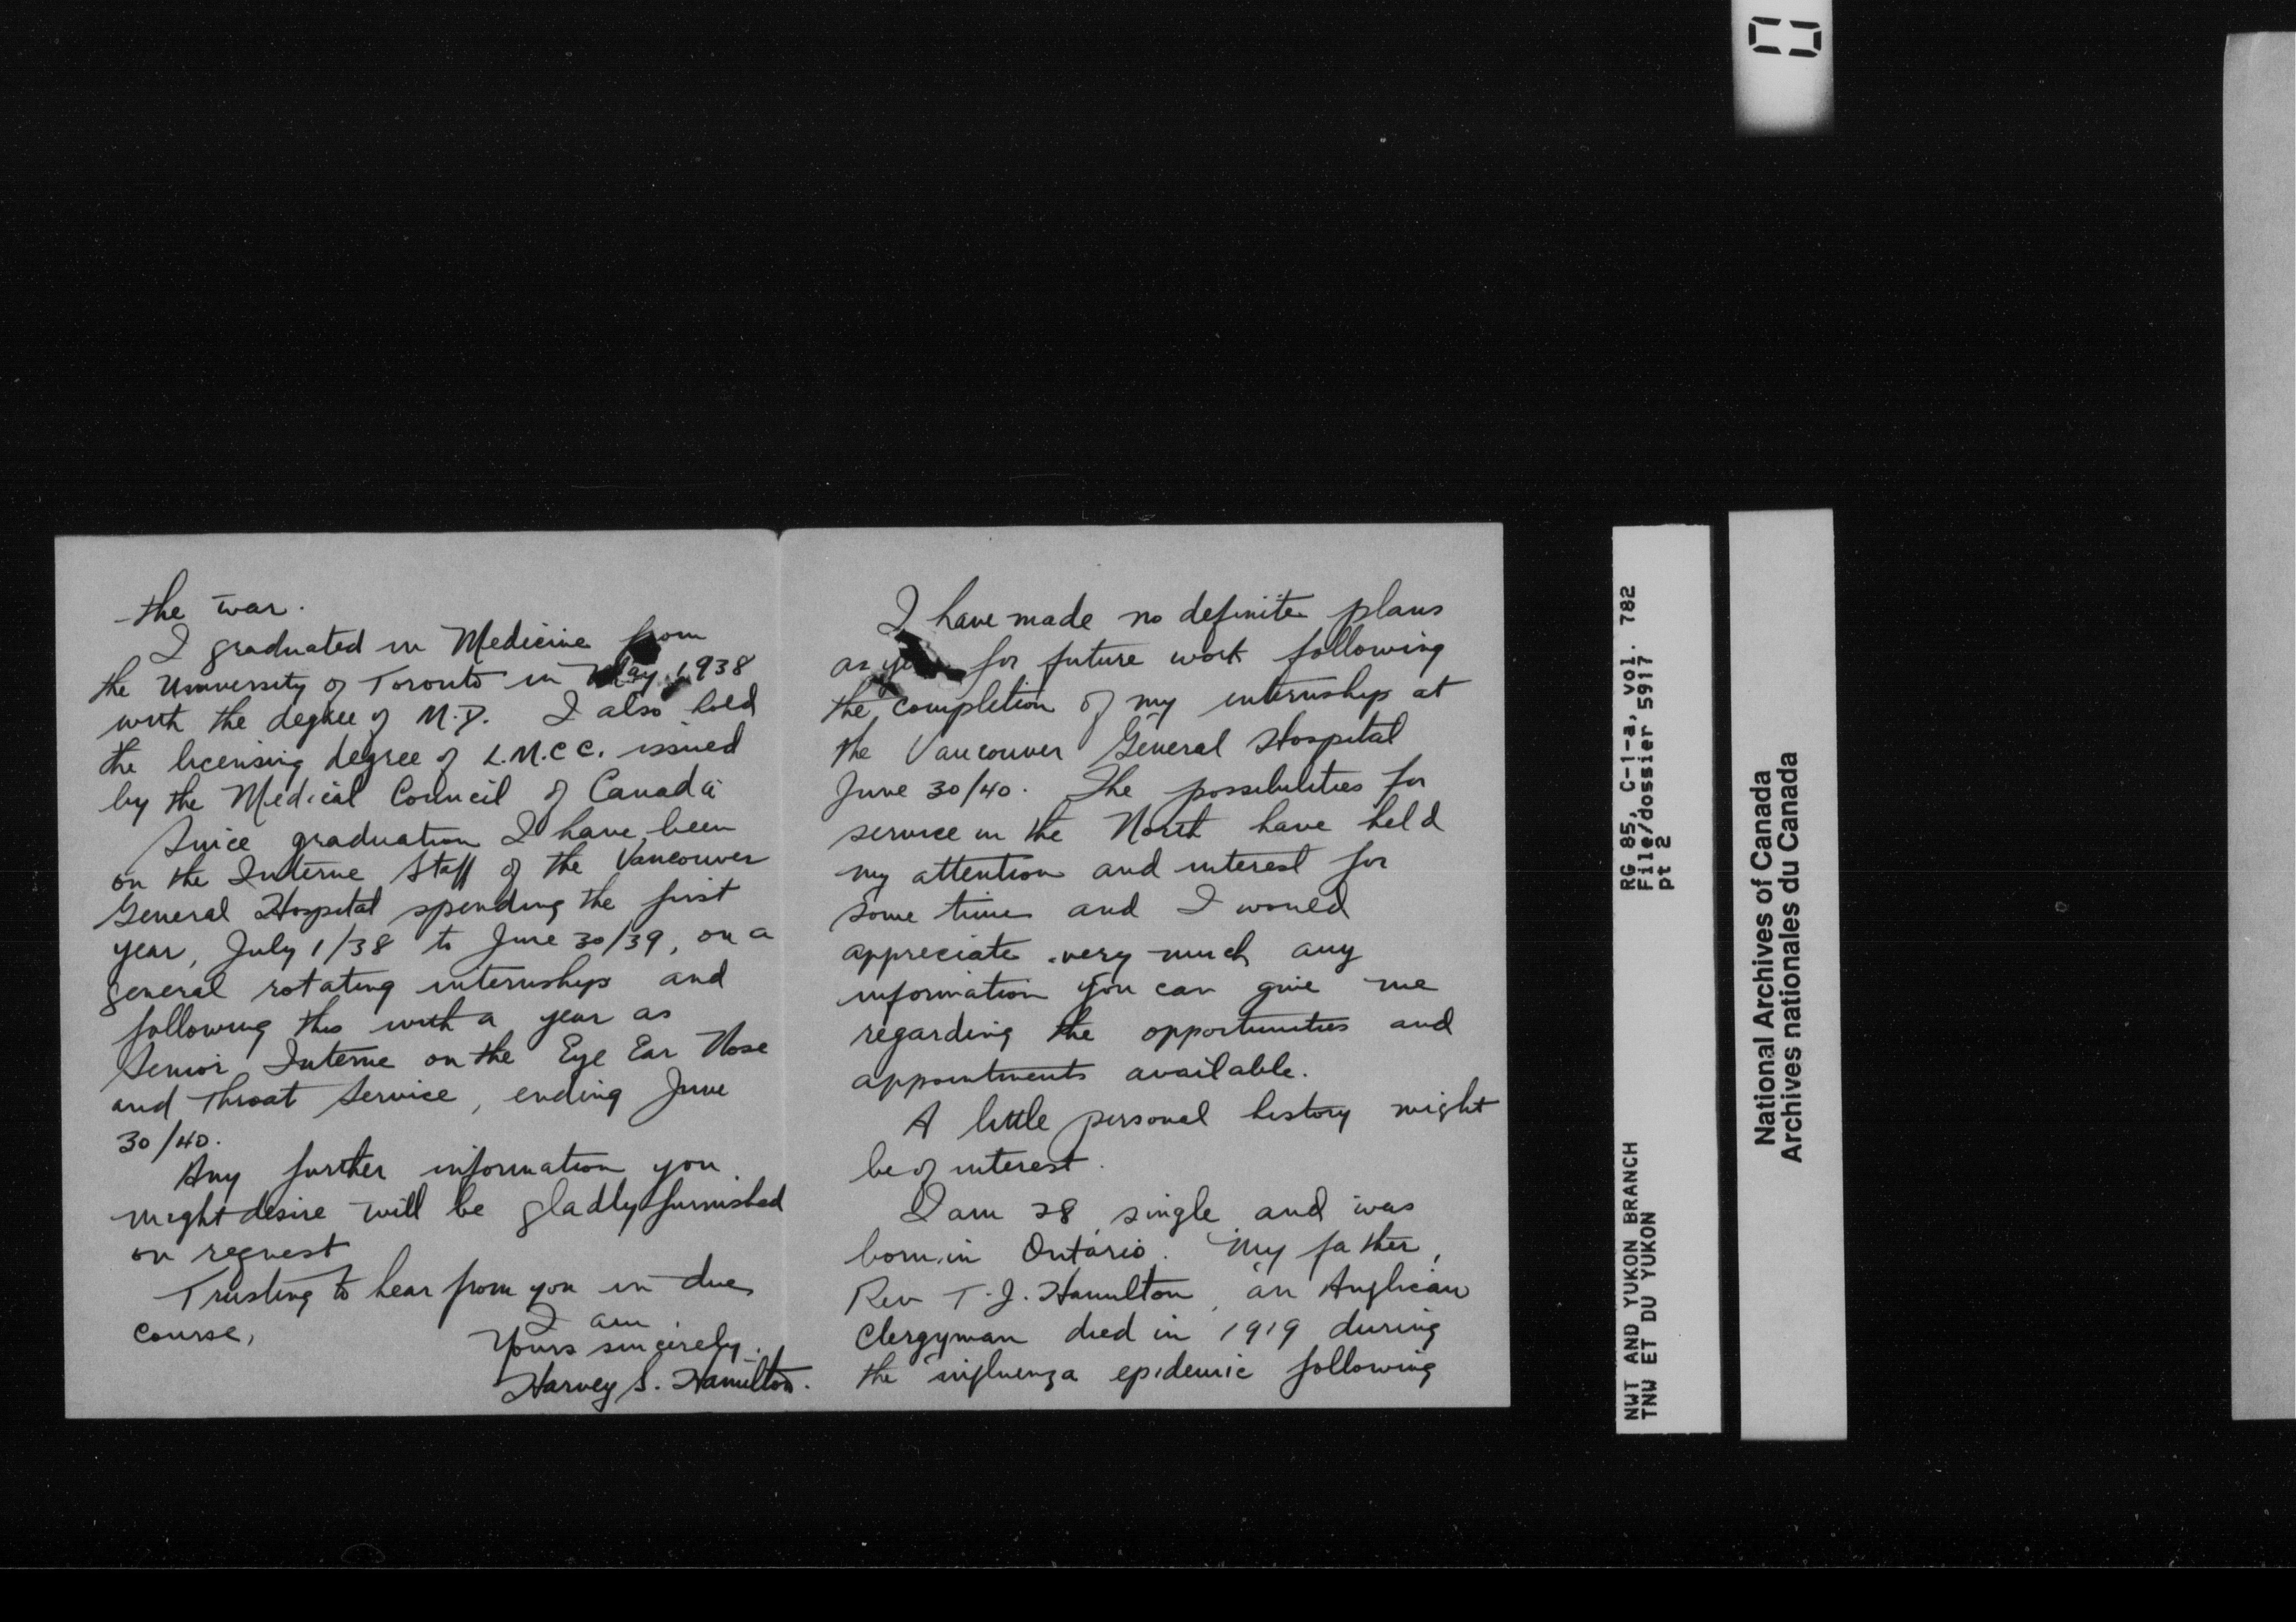 I have made no definite plans
as for future work following
the completion of my internship at
the Vancouver General Hospital
June 30/40. The possibilities for
service in the North have held
my attention and interest for
some time and I would
appreciate very much any
information you can give me
regarding the opportunities and
appointments available.
A little personal history might
be of interest.
I am 28, single, and was
born in Ontario. My father,
Rev T. J. Hamilton, an Anglican
Clergyman died in 1919 during
the influenza epidemic following
the war.
I graduated in Medicine from
the University of Toronto in May 1938
with the degree of M.D. I also hold
the licensing degree of L.M.C.C. issued
by the Medical Council of Canada
Since graduation I have been
on the Interne Staff of the Vancouver
General Hospital spending the first
year, July 1/38 to June 30/39, on a
general rotating internship and
following this with a year as
Senior Interne on the Eye Ear Nose
and Throat Service, ending June
30/40.
Any further information you
might desire will be gladly furnished
on request
Trusting to hear from you in due
course,
I am
Yours sincerely,
Harvey S. Hamilton.
RG 85, C-1-a, vol. 782
File/dossier 5917
pt 2
NWT AND YUKON BRANCH
TNW ET DU YUKON
National Archives of Canada
Archives nationales du Canada